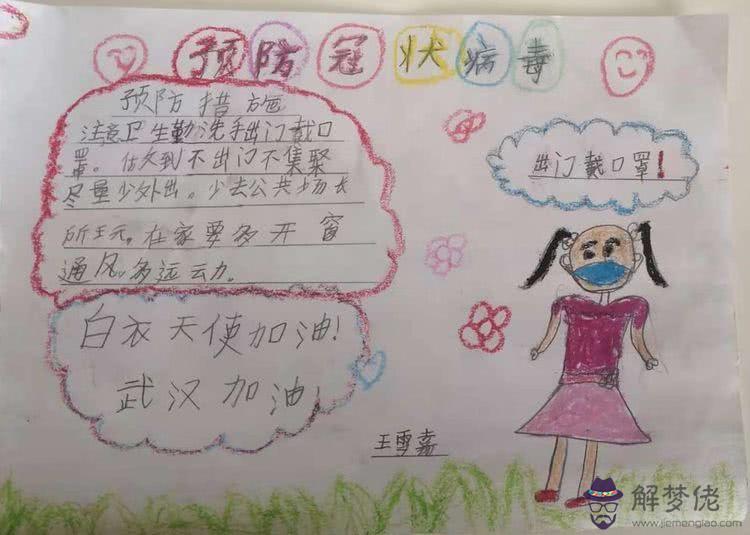 预防冠状病毒
预防措施
注意卫生勤洗手出门戴口
罩。做到不出门不集聚
尽量少外出。少去公共场
所玩,在家要多开窗
通风多运动。
出门戴口罩!
白衣天使加油!
武汉加油!
王雪嘉
解梦佬
www.jiemenglao.com